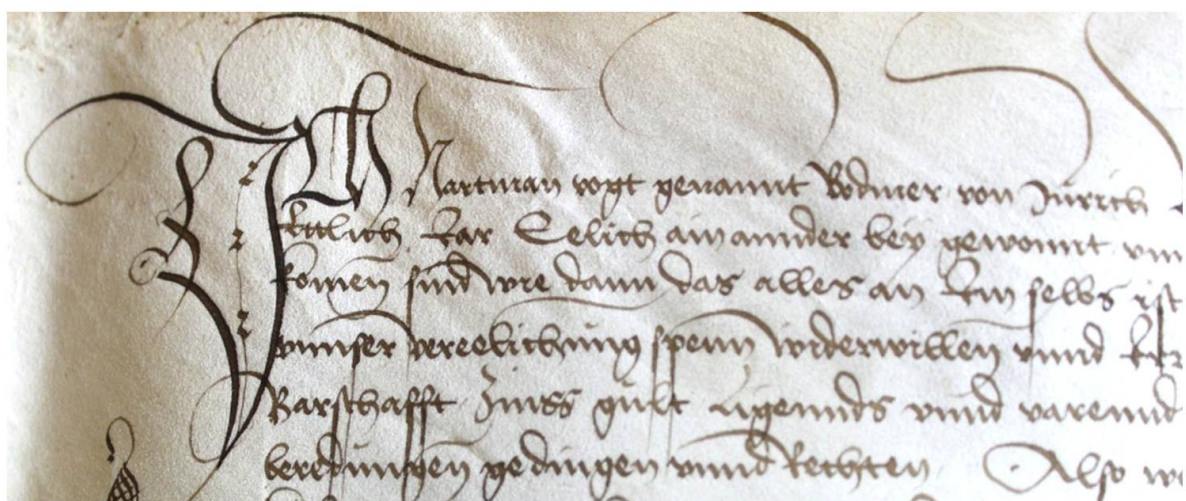 Ich Hartman vogt genannt Bodmer von Zürrich
Ettlich Jar Eelich ain annder bey gewonnt vnn
komen sind wie dann das alles an Im selbs ist
vnnser vereelichung spenn widerwillen vnnd
Barschafft Zinss gult ligennds vnnd varennd
beredungen gedingen vnnd Rechten Also we